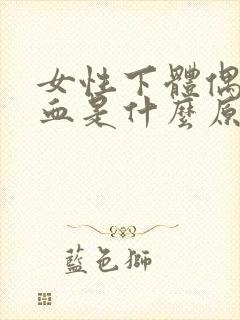 女性下體偶
血是什麼原
藍色獅